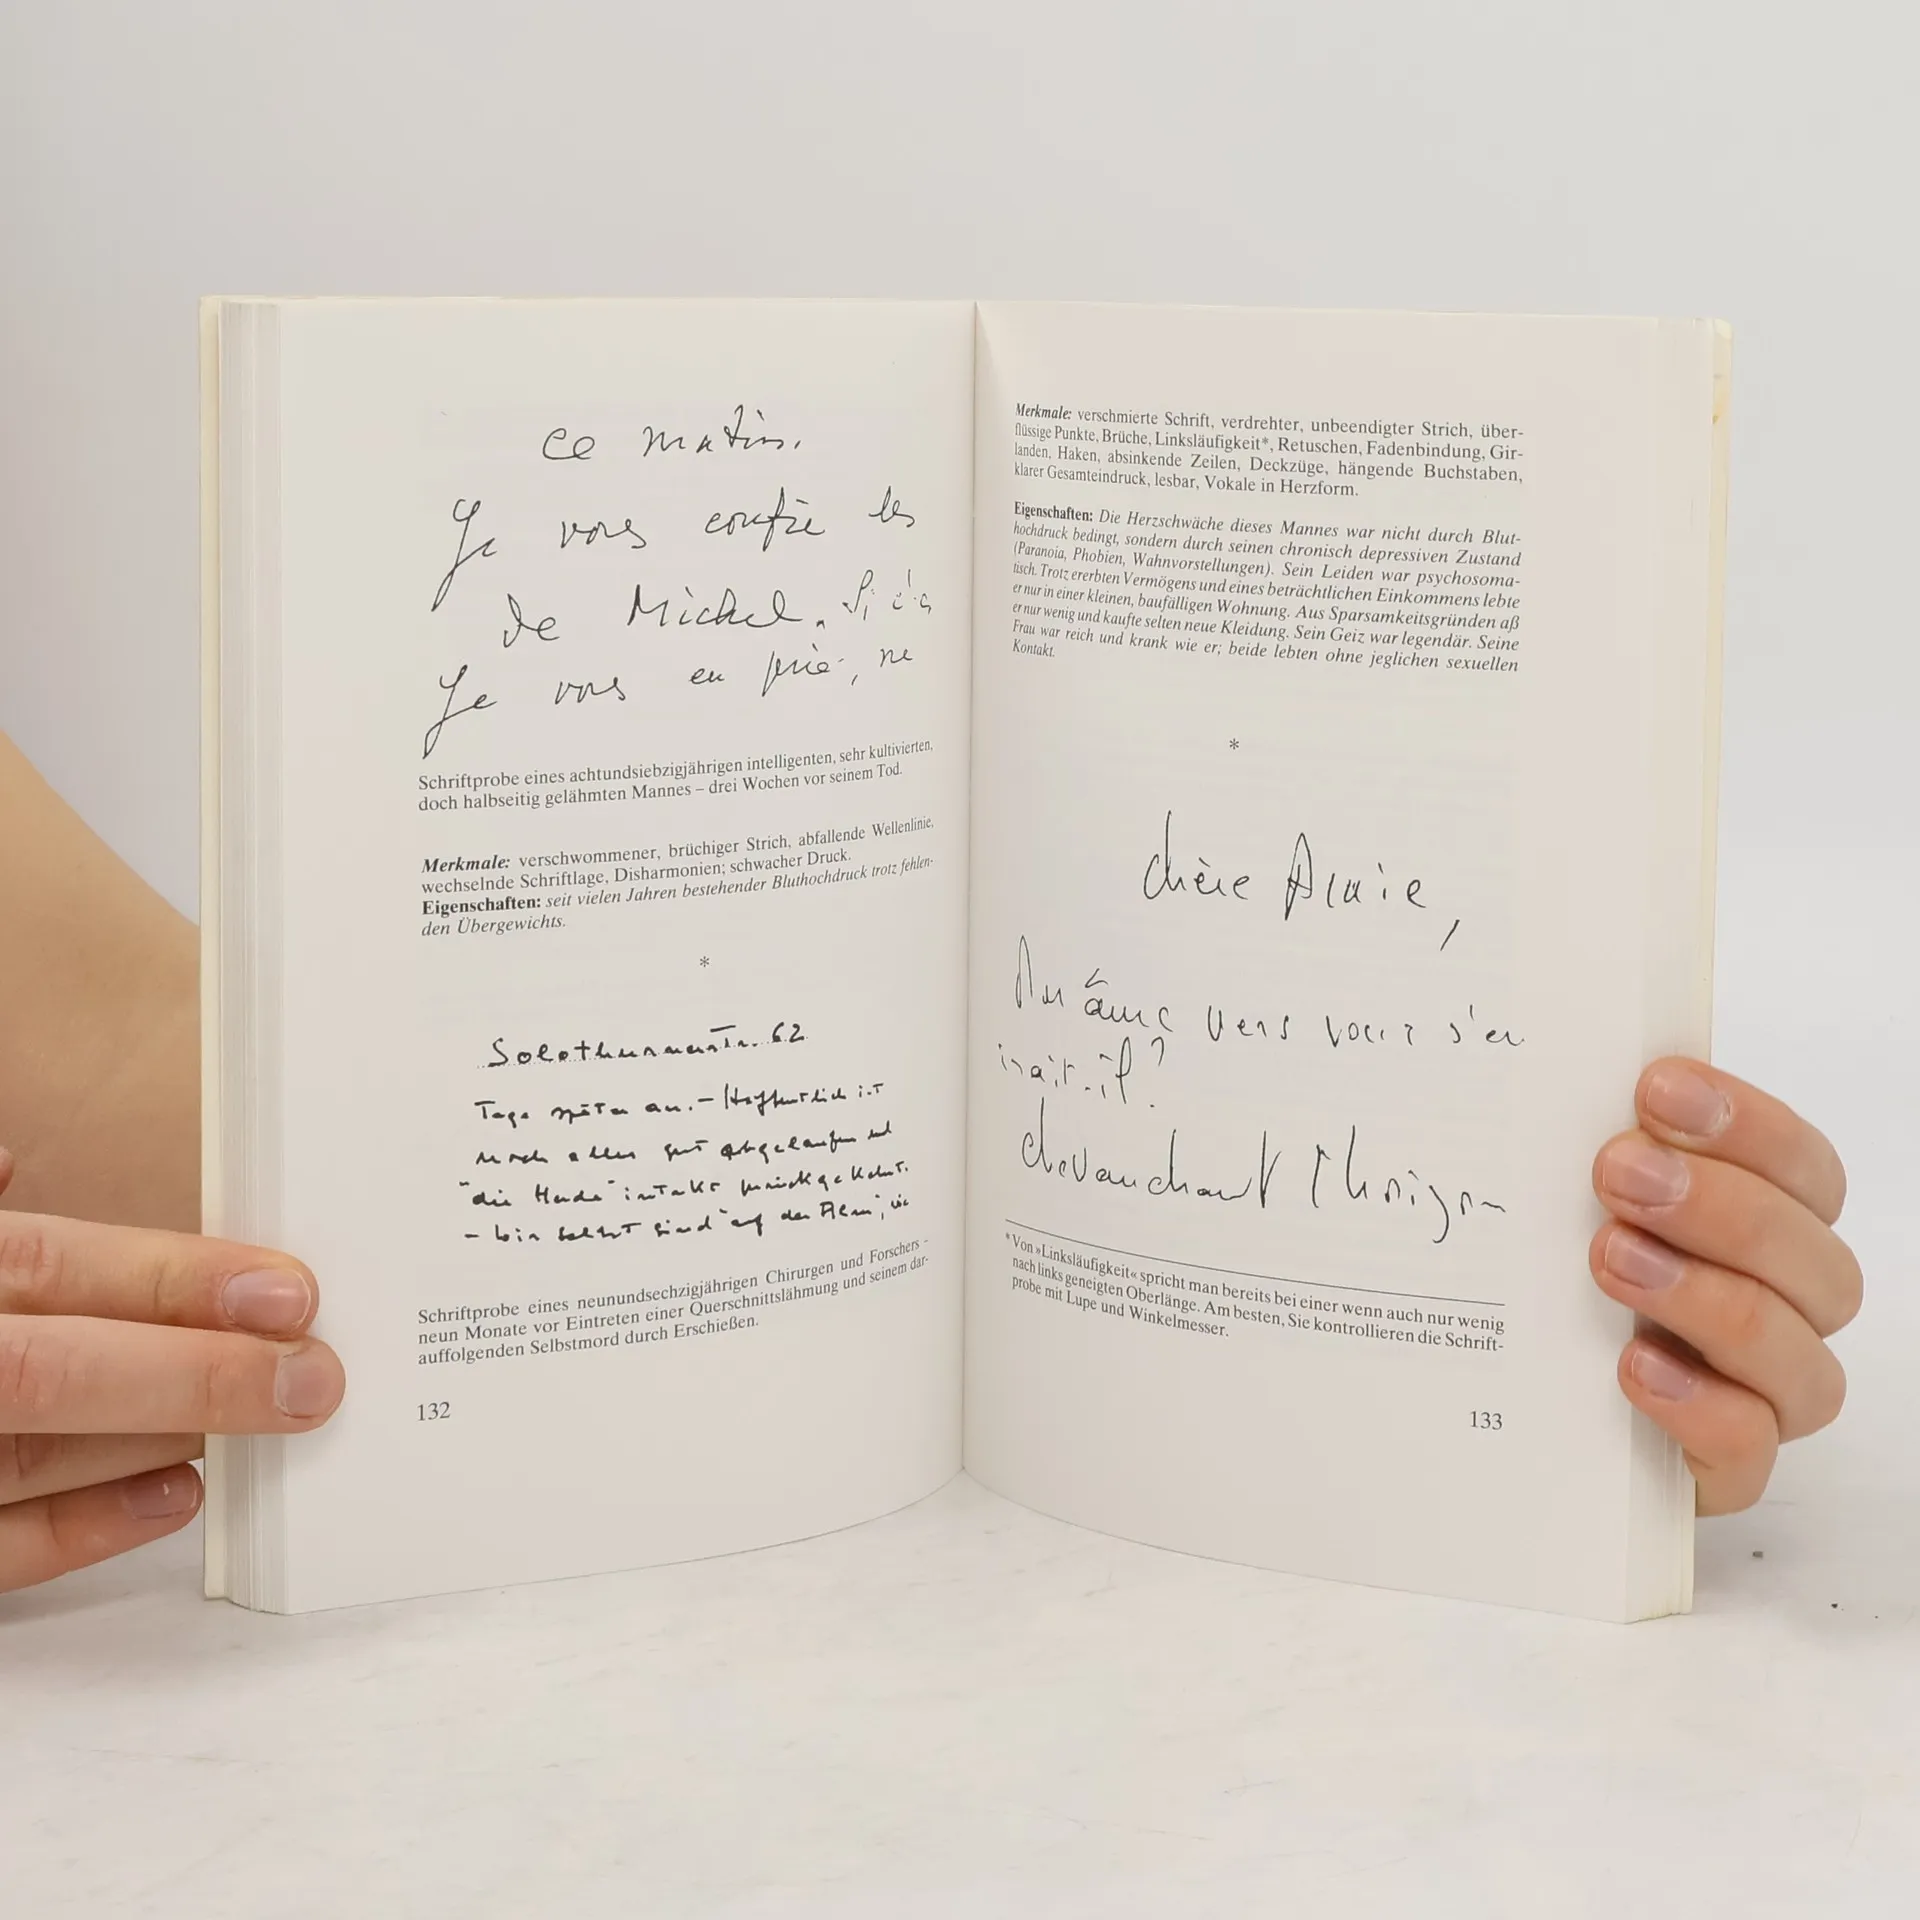 ce matin.
Je vous confie les
de Michel.
Je vous en prie, ne
Schriftprobe eines achtundsiebzigjährigen intelligenten, sehr kultivierten,
doch halbseitig gelähmten Mannes – drei Wochen vor seinem Tod.
Merkmale: verschwommener, brüchiger Strich, abfallende Wellenlinie,
wechselnde Schriftlage, Disharmonien; schwacher Druck.
Eigenschaften: seit vielen Jahren bestehender Bluthochdruck trotz fehlen-
den Übergewichts.
*
Solothurnerstr. 62
Tage später an. – Hoffentlich ist
noch alles gut abgelaufen und
"die Herde" intakt zurückgekehrt.
– wir selbst sind "auf der Alm",
Schriftprobe eines neunundsechzigjährigen Chirurgen und Forschers -
neun Monate vor Eintreten einer Querschnittslähmung und seinem dar-
auffolgenden Selbstmord durch Erschießen.
132
Merkmale: verschmierte Schrift, verdrehter, unbeendigter Strich, über-
flüssige Punkte, Brüche, Linksläufigkeit*, Retuschen, Fadenbindung, Gir-
landen, Haken, absinkende Zeilen, Deckzüge, hängende Buchstaben,
klarer Gesamteindruck, lesbar, Vokale in Herzform.
Eigenschaften: Die Herzschwäche dieses Mannes war nicht durch Blut-
hochdruck bedingt, sondern durch seinen chronisch depressiven Zustand
(Paranoia, Phobien, Wahnvorstellungen). Sein Leiden war psychosoma-
tisch. Trotz ererbten Vermögens und eines beträchtlichen Einkommens lebte
er nur in einer kleinen, baufälligen Wohnung. Aus Sparsamkeitsgründen aß
er nur wenig und kaufte selten neue Kleidung. Sein Geiz war legendär. Seine
Frau war reich und krank wie er; beide lebten ohne jeglichen sexuellen
Kontakt.
*
chère Amie,
âme vers vous s'en
irait-il?
chevauchant l'horizon
*Von »Linksläufigkeit« spricht man bereits bei einer wenn auch nur wenig
nach links geneigten Oberlänge. Am besten, Sie kontrollieren die Schrift-
probe mit Lupe und Winkelmesser.
133